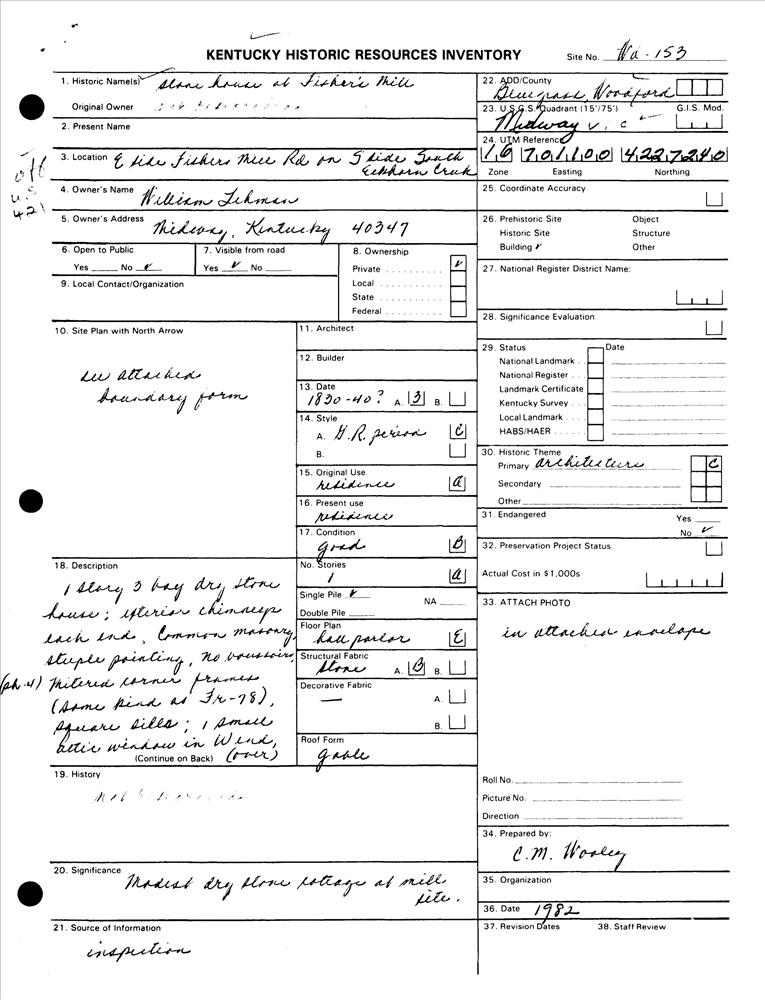 KENTUCKY HISTORIC RESOURCES INVENTORY
Site No. Wd-153
1. Historic Name(s) Stone house at Fisher's Mill
Original Owner
2. Present Name
3. Location E side Fishers Mill Rd on S side South
Elkhorn Creek
off
U.S.
421
4. Owner's Name William Lehman
5. Owner's Address Midway, Kentucky 40347
6. Open to Public
Yes No ✓
7. Visible from road
Yes ✓ No
8. Ownership
Private ✓
Local
State
Federal
9. Local Contact/Organization
10. Site Plan with North Arrow
see attached
boundary form
11. Architect
12. Builder
13. Date
1830-40? A. 3 B.
14. Style
A. G.R. period C
B.
15. Original Use
residence A
16. Present use
residence
17. Condition
good B
18. Description
1 story 3 bay dry stone
house; exterior chimneys
each end. Common masonry,
steeple pointing, no voussoirs,
(ph.4) Mitered corner frames
(same kind as Fr-78),
square sills; 1 small
attic window in W end,
(Continue on Back) (over)
No. Stories
1 A
Single Pile ✓
Double Pile NA
Floor Plan
hall parlor E
Structural Fabric
Stone A. B B.
Decorative Fabric
— A.
B.
Roof Form
gable
19. History
20. Significance
Modest dry stone cottage at mill
site.
21. Source of Information
inspection
22. ADD/County
Bluegrass, Woodford
23. U.S.G.S. Quadrant (15'/75') G.I.S. Mod.
Midway
24. UTM Reference
16 701100 4227240
Zone Easting Northing
25. Coordinate Accuracy
26. Prehistoric Site Object
Historic Site Structure
Building ✓ Other
27. National Register District Name:
28. Significance Evaluation
29. Status Date
National Landmark
National Register
Landmark Certificate
Kentucky Survey
Local Landmark
HABS/HAER
30. Historic Theme
Primary architecture C
Secondary
Other
31. Endangered Yes
No ✓
32. Preservation Project Status
Actual Cost in $1,000s
33. ATTACH PHOTO
in attached envelope
Roll No.
Picture No.
Direction
34. Prepared by:
C.M. Wooley
35. Organization
36. Date 1982
37. Revision Dates 38. Staff Review